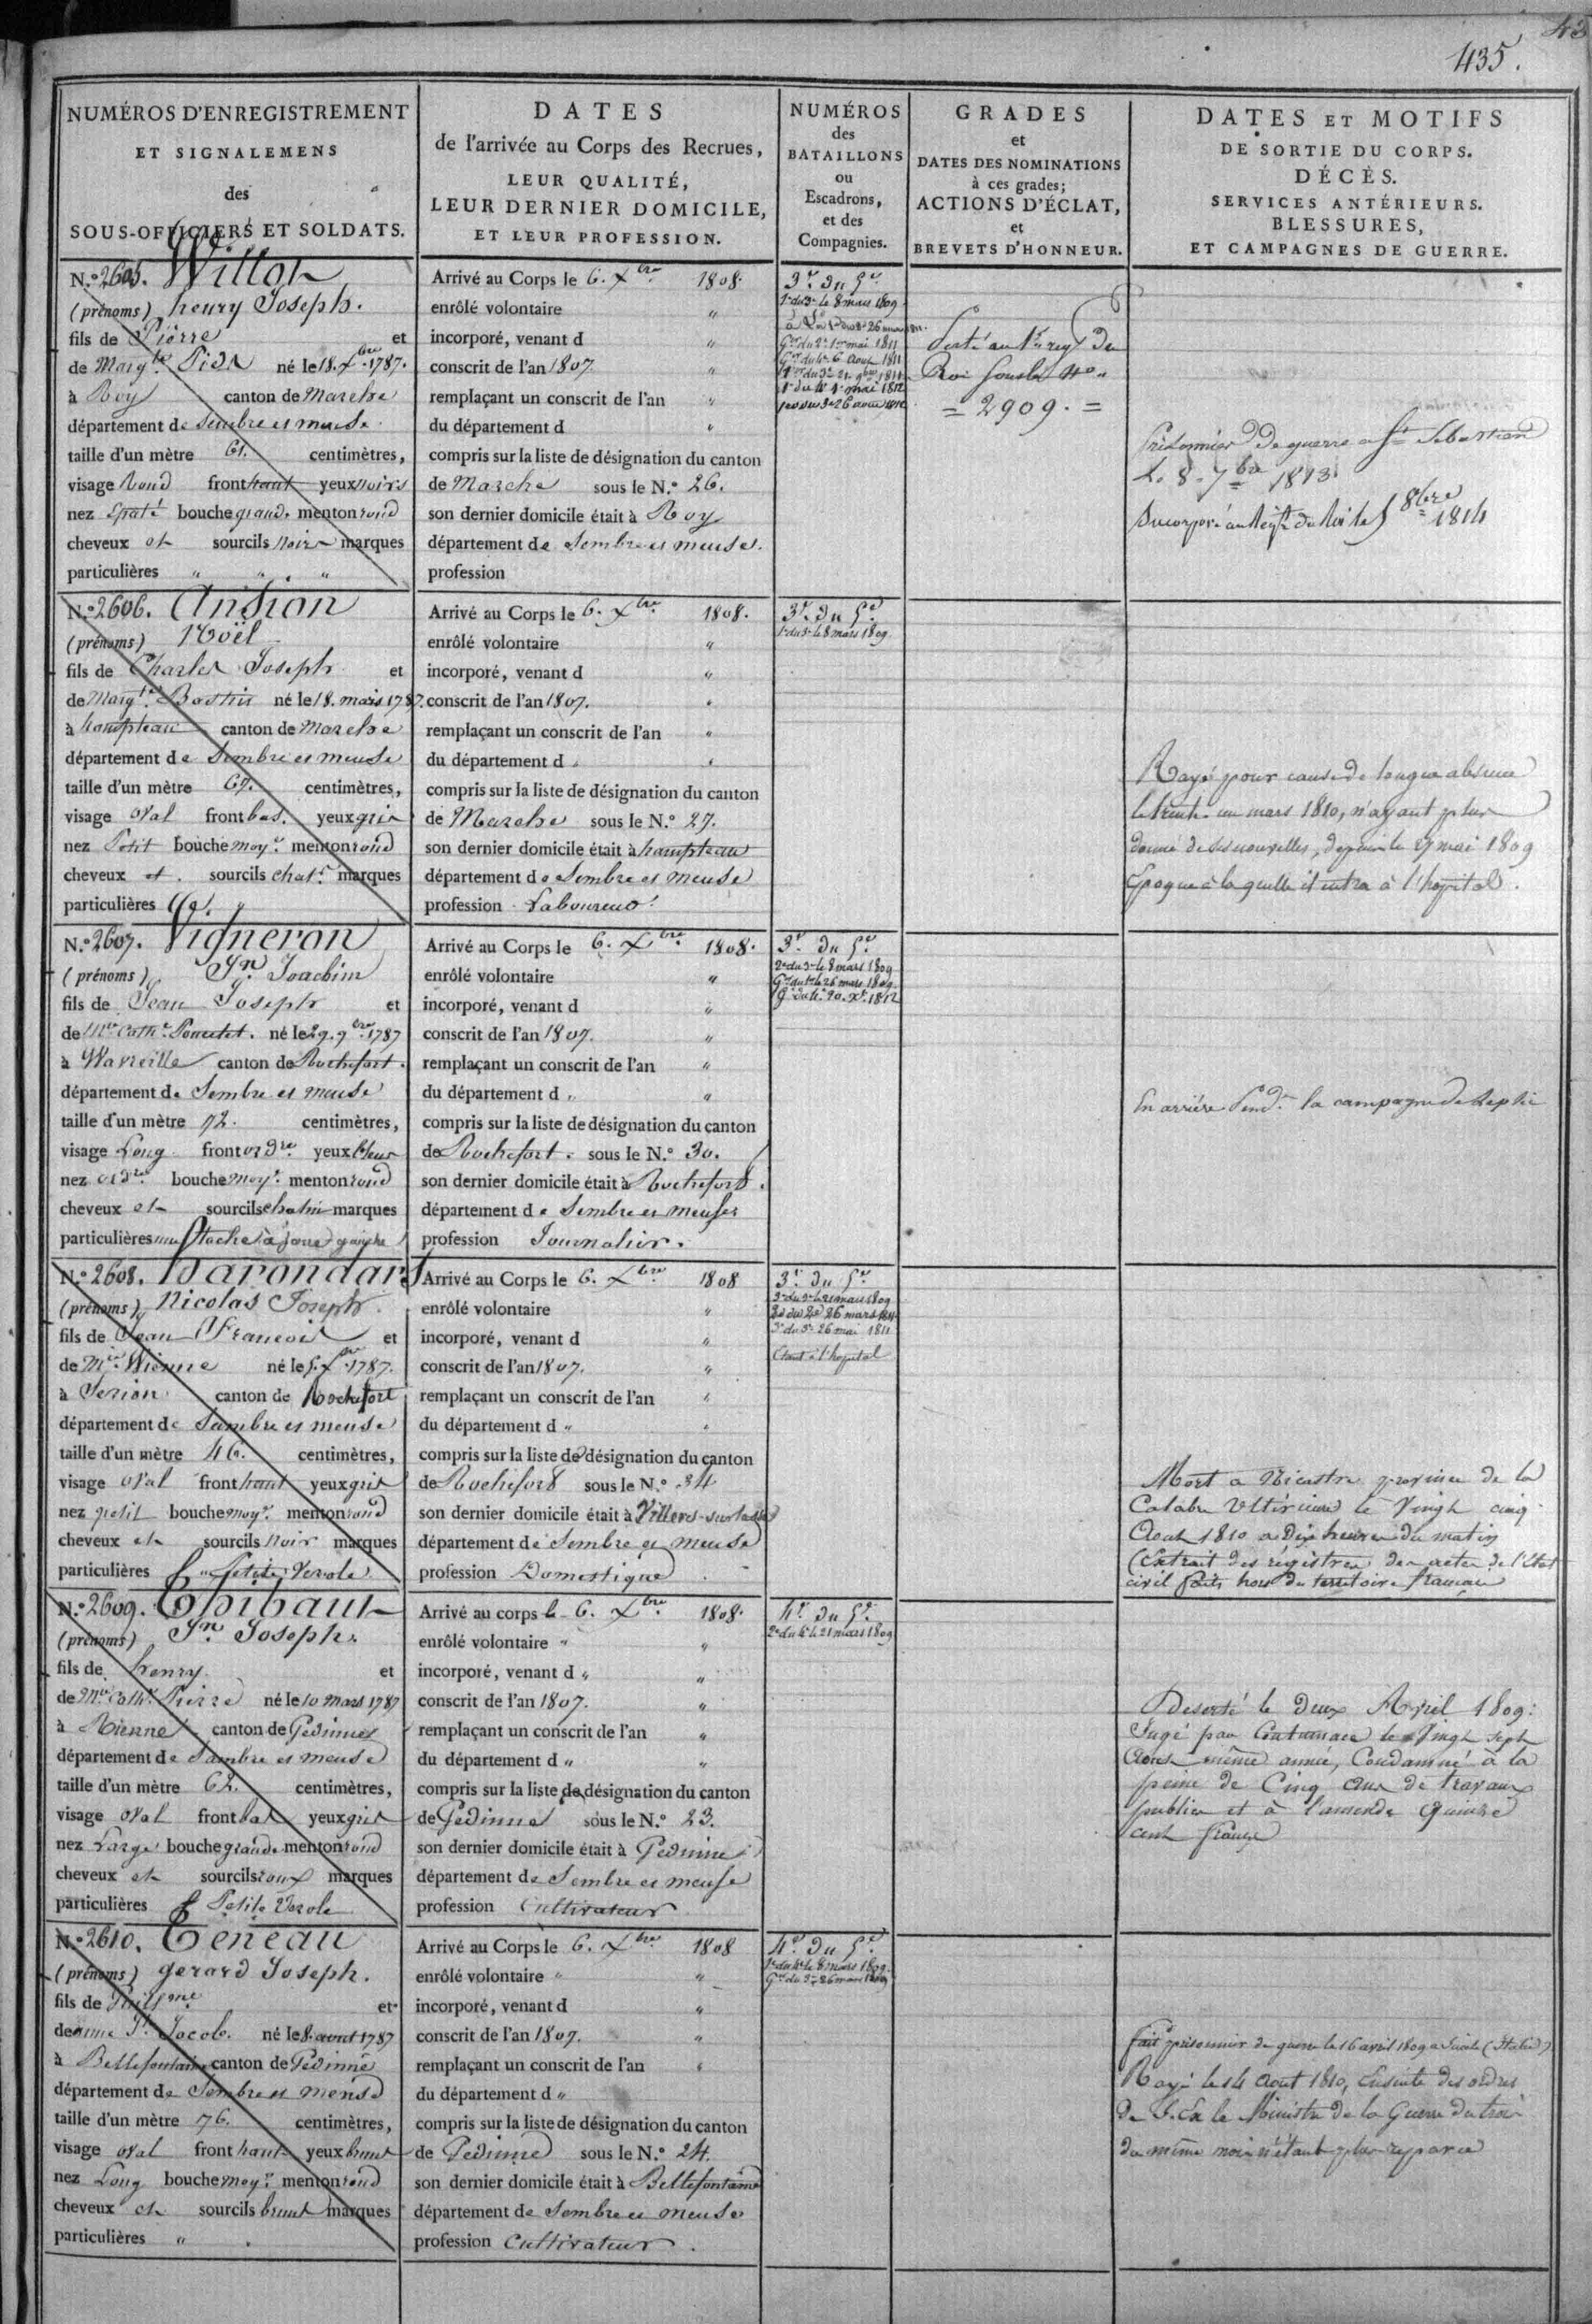 435.
NUMÉROS D'ENREGISTREMENT
ET SIGNALEMENS
des
SOUS-OFFICIERS ET SOLDATS.
DATES
de l'arrivée au Corps des Recrues,
LEUR QUALITÉ,
LEUR DERNIER DOMICILE,
ET LEUR PROFESSION.
NUMÉROS
des
BATAILLONS
ou
Escadrons,
et des
Compagnies.
GRADES
et
DATES DES NOMINATIONS
à ces grades;
ACTIONS D'ÉCLAT,
et
BREVETS D'HONNEUR.
DATES ET MOTIFS
DE SORTIE DU CORPS.
DÉCÈS.
SERVICES ANTÉRIEURS.
BLESSURES,
ET CAMPAGNES DE GUERRE.
N.° 2605. Willot
(prénoms) henry Joseph.
fils de Pierre et
de Marg.te né le 18. Xbre 1787.
à Roy canton de Marche
département de Sembre et meuse
taille d'un mètre 61. centimètres,
visage Rond front haut yeux noirs
nez Epaté bouche grande menton rond
cheveux et sourcils noir marques
particulières " " "
Arrivé au Corps le 6. Xbre 1808.
enrôlé volontaire "
incorporé, venant d "
conscrit de l'an 1807 "
remplaçant un conscrit de l'an "
du département d "
compris sur la liste de désignation du canton
de Marche sous le N.° 26.
son dernier domicile était à Roy
département de Sembre et meuse.
profession
3e. du 5e
1e du 3e le 8 mars 1809
Porté au 1er reg.t du
Roi sous le No
= 2909. =
Prisonnier de guerre a St Sebastien
Le 8. 7bre 1813.
Incorporé au Reg.t du Roi le 8bre 1814
N.° 2606. Ansion
(prénoms) Noël
fils de Charles Joseph et
de Marg.te Bastin né le 18. mars 1787.
à hampteau canton de Marche
département de Sembre et meuse
taille d'un mètre 67. centimètres,
visage oval front bas. yeux gris
nez Petit bouche moy.e menton rond
cheveux et sourcils chat.n marques
particulières "
Arrivé au Corps le 6. Xbre 1808.
enrôlé volontaire "
incorporé, venant d "
conscrit de l'an 1807. "
remplaçant un conscrit de l'an "
du département d "
compris sur la liste de désignation du canton
de Marche sous le N.° 27.
son dernier domicile était à hampteau
département de Sembre et meuse
profession Laboureur
3e. du 5e
1e du 3e le 8 mars 1809
Rayé pour cause de longue absence
le trente un mars 1810, n'ayant plus
donné de ses nouvelles, depuis le 27 mai 1809
Epoque à laquelle il entra à l'hopital.
N.° 2607. Vigneron
(prénoms) Jn. Joachim
fils de Jean Joseph et
de Mie Cathe Poncelet. né le 29. 7bre 1787
à Wavreille canton de Rochefort.
département de Sembre et meuse
taille d'un mètre 72. centimètres,
visage Long front ordre yeux bleus
nez ordre bouche moy.e menton rond
cheveux et sourcils chatin marques
particulières une tache à joue gauche
Arrivé au Corps le 6. Xbre 1808.
enrôlé volontaire "
incorporé, venant d "
conscrit de l'an 1807. "
remplaçant un conscrit de l'an "
du département d " "
compris sur la liste de désignation du canton
de Rochefort. sous le N.° 30.
son dernier domicile était à Rochefort.
département de Sembre et meuse
profession Journalier.
3e. du 5e
2e du 3e le 8 mars 1809
En arrière Pend.t la campagne de
N.° 2608. Barondard
(prénoms) Nicolas Joseph
fils de Jean Francois et
de Mie Wienne né le 5. Xbre 1787.
à canton de Rochefort
département de Sambre et meuse
taille d'un mètre 46. centimètres,
visage oval front haut yeux gris
nez petit bouche moy.e menton rond
cheveux et sourcils noir marques
particulières Petite Verole
Arrivé au Corps le 6. Xbre 1808
enrôlé volontaire "
incorporé, venant d "
conscrit de l'an 1807. "
remplaçant un conscrit de l'an "
du département d " "
compris sur la liste de désignation du canton
de Rochefort sous le N.° 34
son dernier domicile était à Villers-sur-lesse
département de Sembre et meuse
profession Domestique
3e. du 5e
3e du 3e 26 mai 1811
étant à l'hopital
Mort a Nicastro province de la
Calabre Ultérieure le Vingt cinq
Aout 1810 a dix heures du matin
(Extrait des régistres des actes de l'Etat
civil faits hors du territoire francais
N.° 2609. Thibaut
(prénoms) Jn. Joseph.
fils de henry et
de Mie Cathe Pierre né le 10 mars 1787
à Rienne canton de Gedinnes
département de Sambre et meuse
taille d'un mètre 62. centimètres,
visage oval front bas yeux gris
nez Large bouche grande menton rond
cheveux et sourcils roux marques
particulières Petite Verole
Arrivé au corps le 6. Xbre 1808.
enrôlé volontaire " "
incorporé, venant d " "
conscrit de l'an 1807. "
remplaçant un conscrit de l'an "
du département d " "
compris sur la liste de désignation du canton
de Gedinne sous le N.° 23.
son dernier domicile était à Gedinne
département de Sembre et meuse
profession Cultivateur
4e. du 5e.
2e du 4e le 21 mars 1809
Deserté le deux Avril 1809:
Jugé par Contumace le Vingt sept
Aout même année, Condamné à la
peine de Cinq ans de travaux
publics et à l'amende quinze
cent francs
N.° 2610. Teneau
(prénoms) gerard Joseph.
fils de Guill.me et
de anne Jacob. né le 8. aout 1787
à Bellefontaine canton de Gedinne
département de Sembre et meuse
taille d'un mètre 76. centimètres,
visage oval front haut yeux bruns
nez Long bouche moy.e menton rond
cheveux et sourcils bruns marques
particulières "
Arrivé au Corps le 6. Xbre 1808
enrôlé volontaire " "
incorporé, venant d "
conscrit de l'an 1807. "
remplaçant un conscrit de l'an "
du département d "
compris sur la liste de désignation du canton
de Gedinne sous le N.° 24.
son dernier domicile était à Bellefontaine
département de Sembre et meuse
profession Cultivateur.
4e. du 5e.
1e du 4e le 8 mars 1809.
fait prisonnier de guerre le 16 avril 1809 a (Italie)
Rayé le 14 Aout 1810, Ensuite des ordres
de S. Ex le Ministre de la Guerre du trois
du même mois n'étant plus reparu